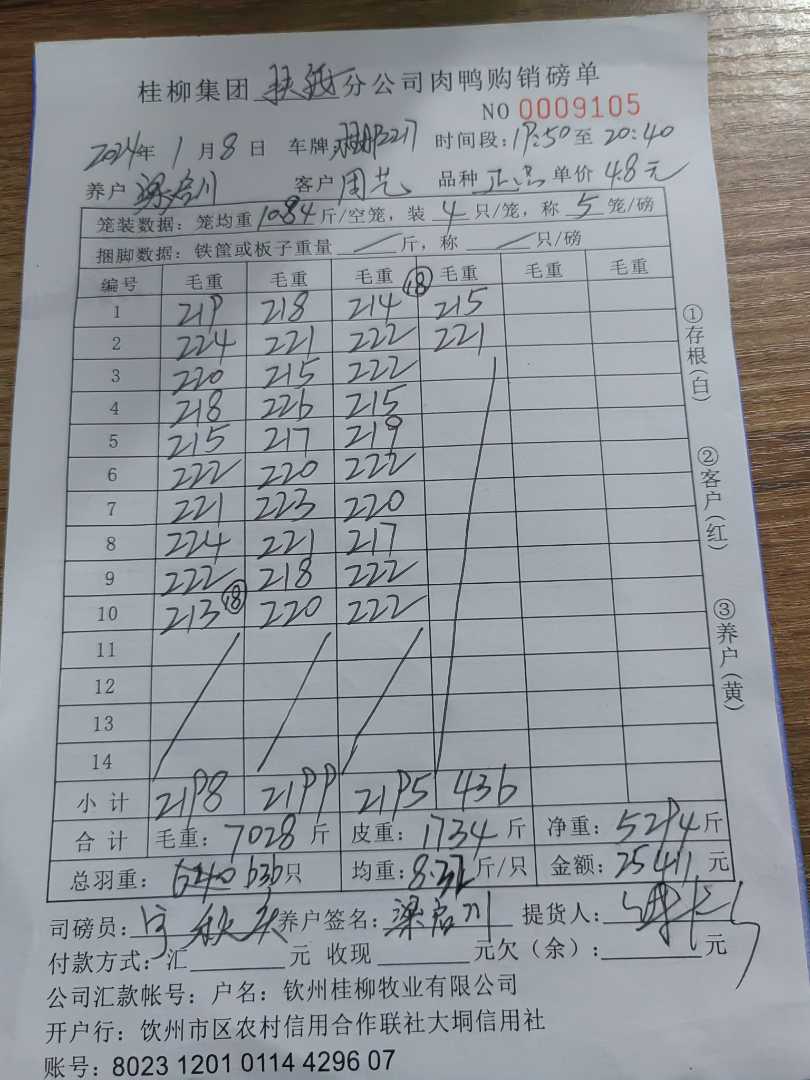 桂柳集团 扶绥 分公司肉鸭购销磅单
NO 0009105
2024年 1月8日 车牌 217 时间段:19:50至20:40
养户 梁启川 客户 周艺 品种 正品 单价 4.8元
笼装数据:笼均重 10.84 斤/空笼,装 4 只/笼,称 5 笼/磅
捆脚数据:铁筐或板子重量 / 斤,称 / 只/磅
编号 毛重 毛重 毛重 毛重 毛重 毛重
1 219 218 214 ⑱ 215
2 224 221 222 221
3 220 215 222
4 218 226 215
5 215 217 219
6 222 220 222
7 221 223 220
8 224 221 217
9 222 218 222
10 213 ⑱ 220 222
11
12
13
14
小计 2198 2199 2195 436
合计 毛重:7028斤 皮重:1734斤 净重:5294斤
总羽重:640 636只 均重:8.32斤/只 金额:25411元
司磅员: 养户签名:梁启川 提货人:
付款方式:汇 元 收现 元欠(余): 元
公司汇款帐号:户名:钦州桂柳牧业有限公司
开户行:饮州市区农村信用合作联社大垌信用社
账号:8023 1201 0114 4296 07
①存根(白)
②客户(红)
③养户(黄)